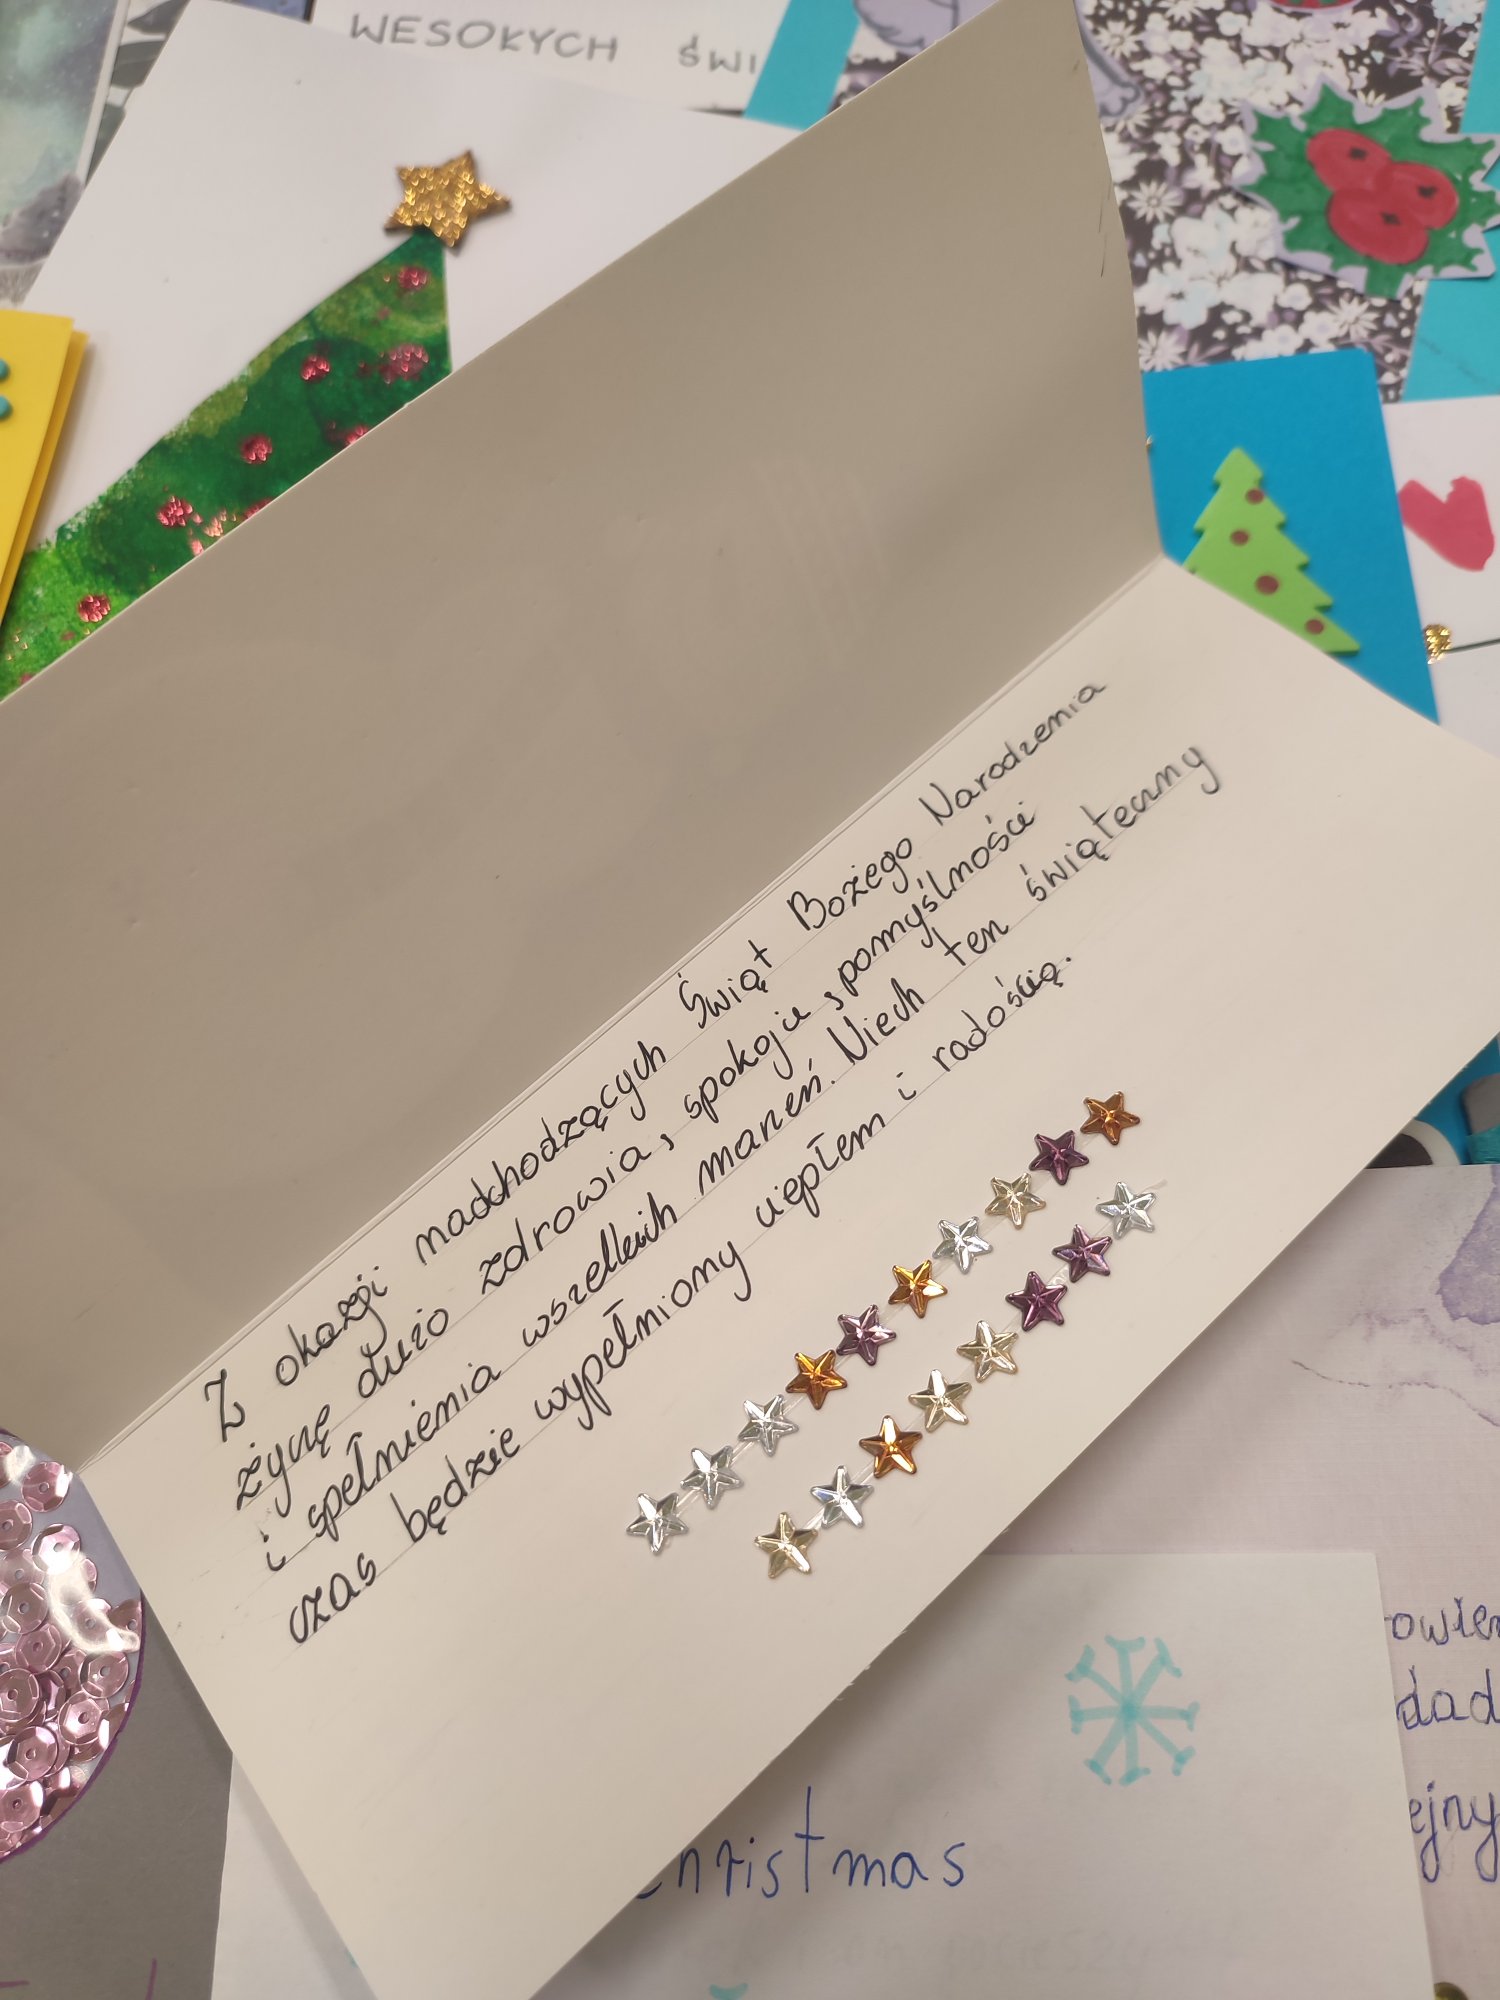 WESOŁYCH ŚWI
Z okazji nadchodzących Świąt Bożego Narodzenia
życzę dużo zdrowia, spokoju, pomyślności
i spełnienia wszelkich marzeń. Niech ten świąteczny
czas będzie wypełniony ciepłem i radością.
christmas
owien
dad
ejny